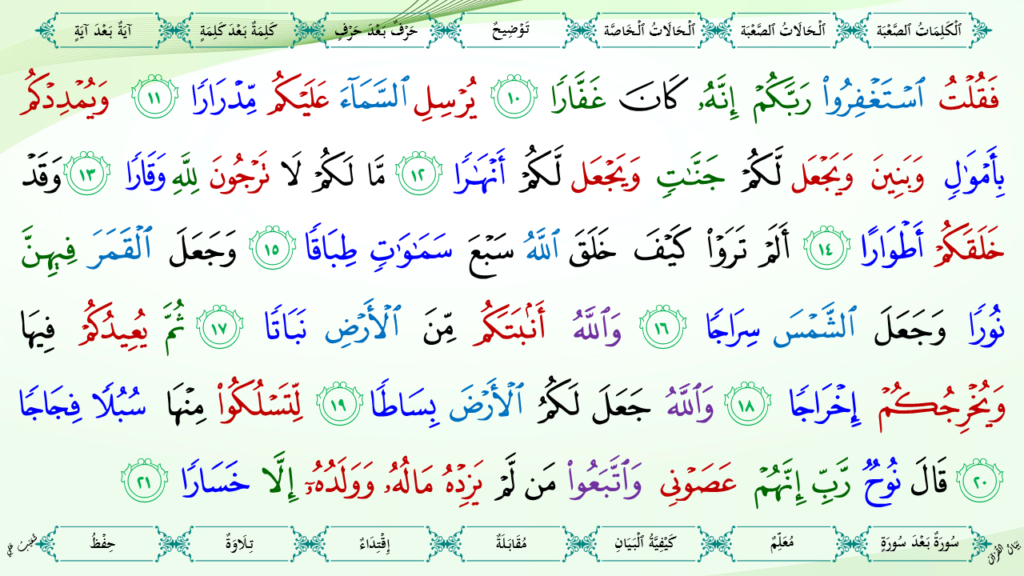 اَلْكَلِمَاتُ الصَّعْبَة
اَلْحَالَاتُ الصَّعْبَة
اَلْحَالَاتُ الْخَاصَّة
تَوْضِيحٌ
حَرْفٌ بَعْدَ حَرْفٍ
كَلِمَةٌ بَعْدَ كَلِمَةٍ
آيَةٌ بَعْدَ آيَةٍ
فَقُلْتُ ٱسْتَغْفِرُوا۟ رَبَّكُمْ إِنَّهُۥ كَانَ غَفَّارًا ١٠ يُرْسِلِ ٱلسَّمَآءَ عَلَيْكُم مِّدْرَارًا ١١ وَيُمْدِدْكُم
بِأَمْوَٰلٍ وَبَنِينَ وَيَجْعَل لَّكُمْ جَنَّـٰتٍ وَيَجْعَل لَّكُمْ أَنْهَـٰرًا ١٢ مَّا لَكُمْ لَا تَرْجُونَ لِلَّهِ وَقَارًا ١٣ وَقَدْ
خَلَقَكُمْ أَطْوَارًا ١٤ أَلَمْ تَرَوْا۟ كَيْفَ خَلَقَ ٱللَّهُ سَبْعَ سَمَـٰوَٰتٍ طِبَاقًا ١٥ وَجَعَلَ ٱلْقَمَرَ فِيهِنَّ
نُورًا وَجَعَلَ ٱلشَّمْسَ سِرَاجًا ١٦ وَٱللَّهُ أَنۢبَتَكُم مِّنَ ٱلْأَرْضِ نَبَاتًا ١٧ ثُمَّ يُعِيدُكُمْ فِيهَا
وَيُخْرِجُكُمْ إِخْرَاجًا ١٨ وَٱللَّهُ جَعَلَ لَكُمُ ٱلْأَرْضَ بِسَاطًا ١٩ لِّتَسْلُكُوا۟ مِنْهَا سُبُلًا فِجَاجًا
٢٠ قَالَ نُوحٌ رَّبِّ إِنَّهُمْ عَصَوْنِى وَٱتَّبَعُوا۟ مَن لَّمْ يَزِدْهُ مَالُهُۥ وَوَلَدُهُۥٓ إِلَّا خَسَارًا ٢١
سُورَةٌ بَعْدَ سُورَةٍ
مُعَلِّمٌ
كَيْفِيَّةُ الْبَيَانِ
مُقَابَلَةٌ
إِقْتِدَاءٌ
تِلَاوَةٌ
حِفْظٌ
بَيَانُ الْقُرْآنِ